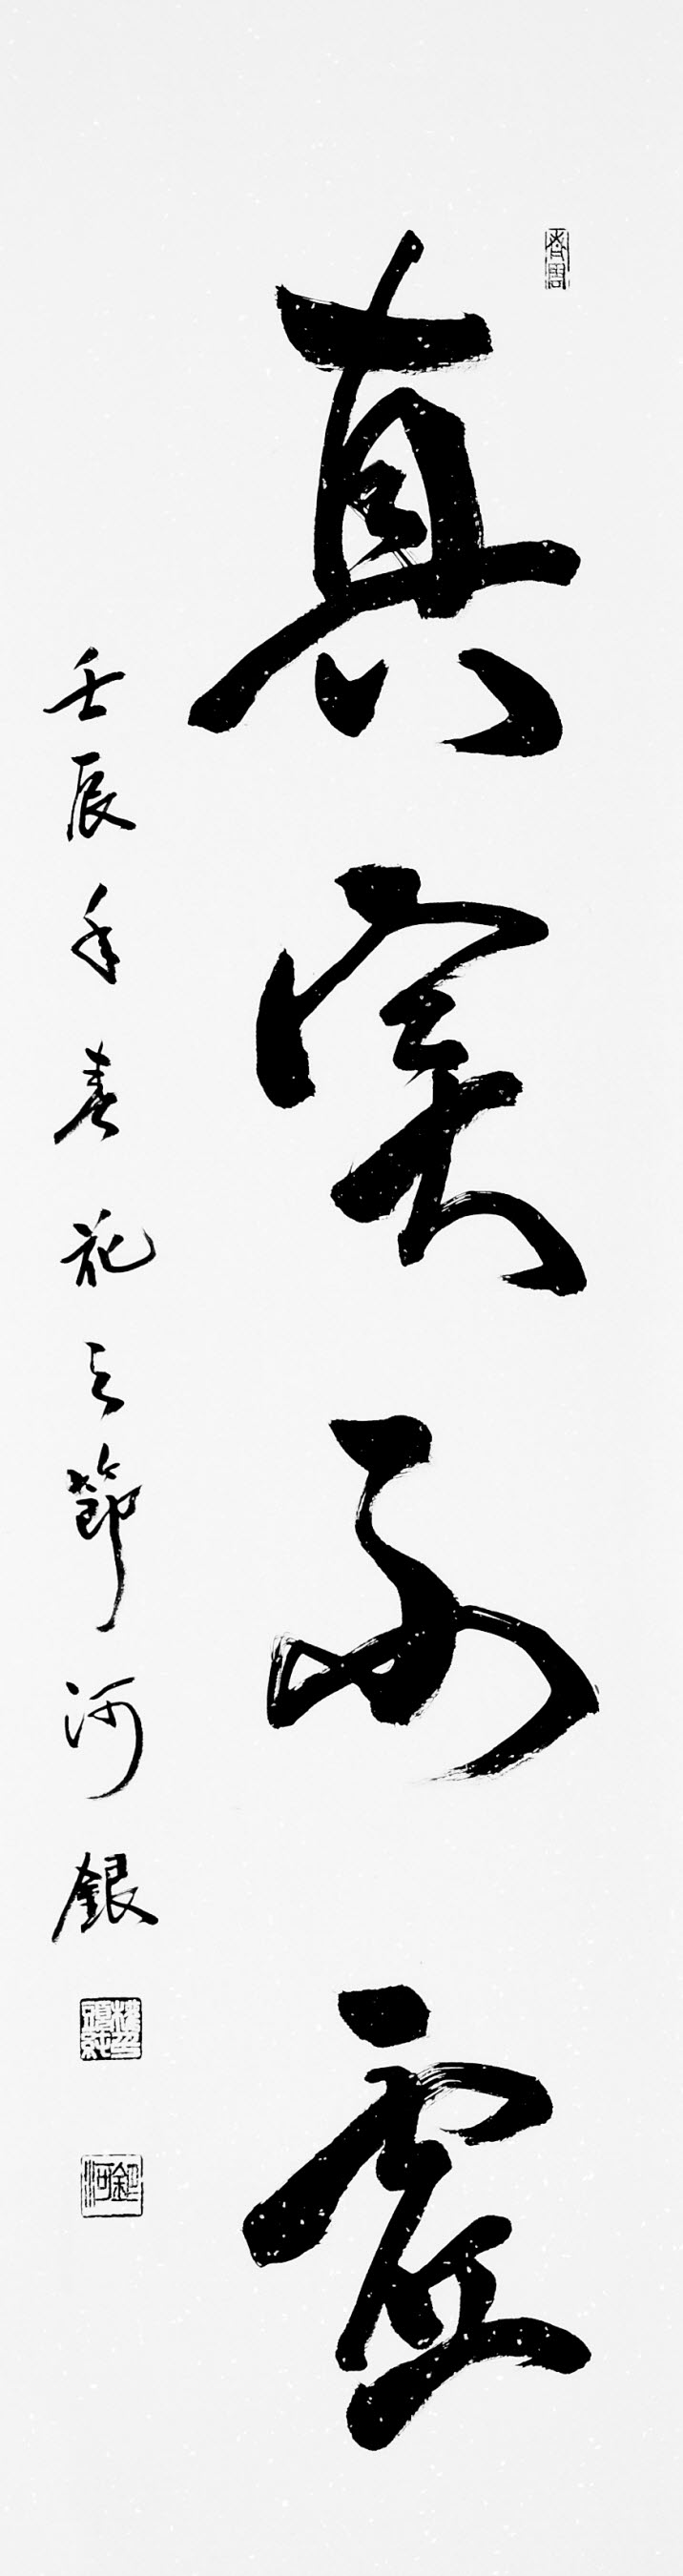 真実不虚
壬辰年春花之節河銀